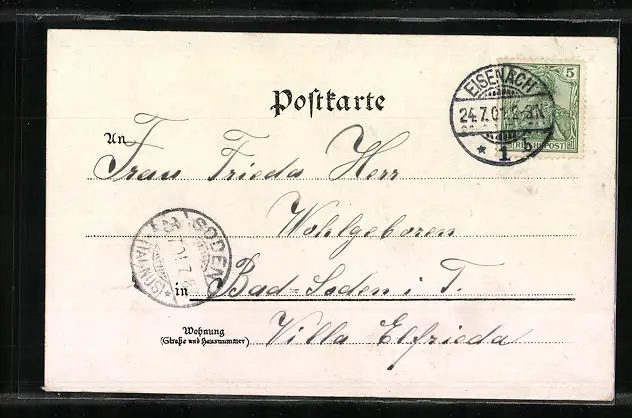 Postkarte
5
REICHSPOST
EISENACH
24.7.01.
* 1
An
Frau Frieda Herr
Wohlgeboren
SODEN
(TAUNUS)
in Bad=Soden i. T.
Wohnung
(Straße und Hausnummer)
Villa Elfrieda